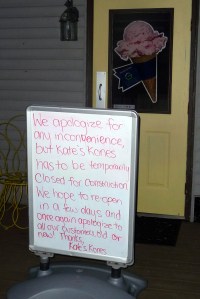 We apologize for
any inconvenience,
but Kate's Kones
has to be temporarily
Closed for Construction
We hope to re-open
in a few days and
once again apologize to
all our customers old or
new! Thanks,
Kate's Kones